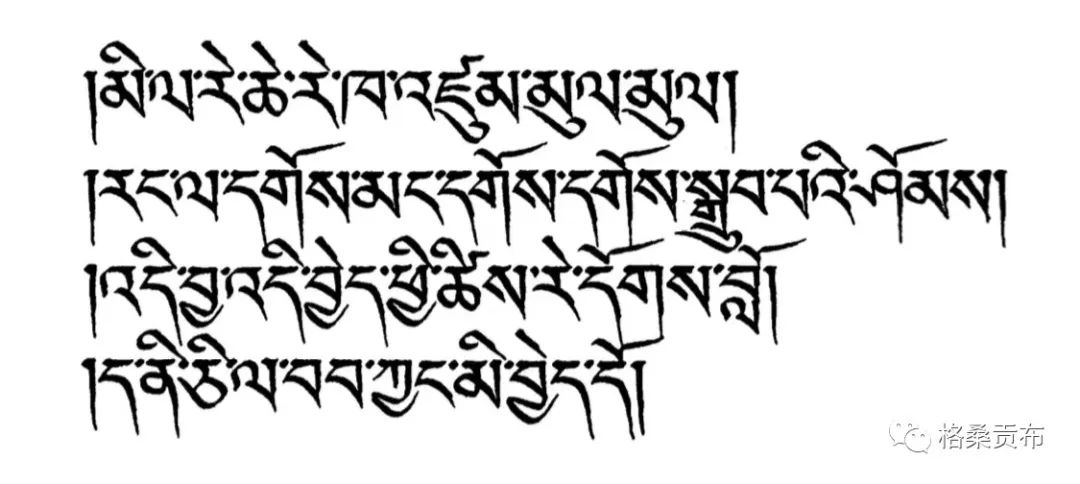 །མི་ལ་རེ་ཆེ་རེ་ཁ་འཛུམ་མུལ་མུལ།
།རང་ལ་དགོས་མང་དགོས་དགོས་སྒྲུབ་པའི་ཤོམས།
།འདི་བྱ་འདི་བྱེད་ཕྱི་ཚིས་རེ་དོགས་བློ།
།ད་ནི་ཅི་ལ་བབ་ཀྱང་མི་བྱེད་དོ།
格桑贡布